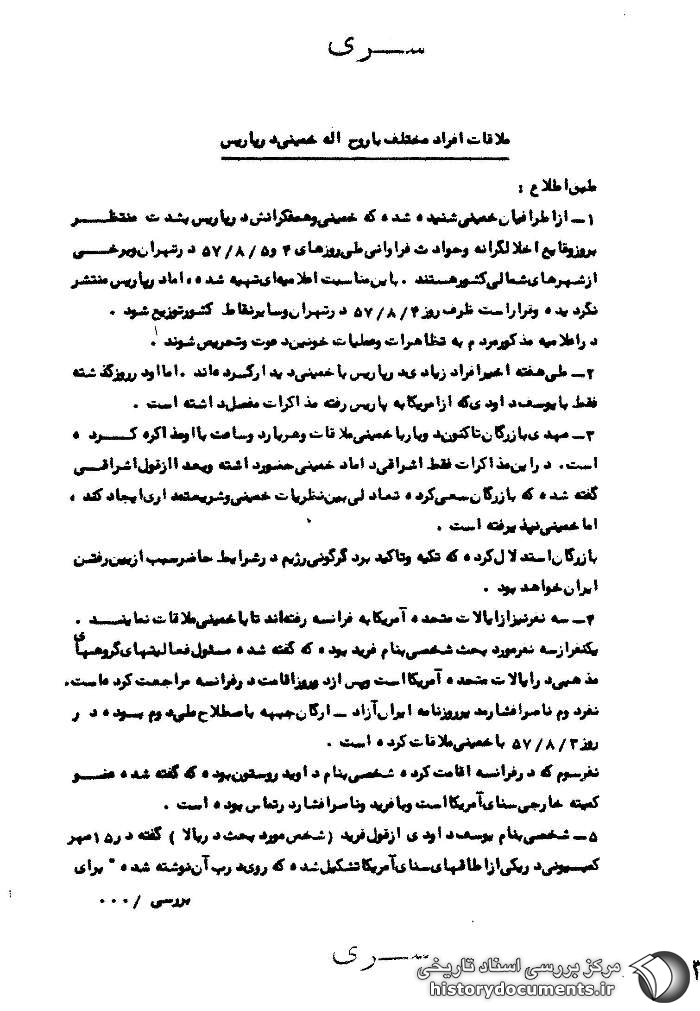 ســری
ملاقات افراد مختلف با روح اله خمینی در پاریس
طبق اطلاع :
۱ــ از اطرافیان خمینی شنیده شده که خمینی و همفکرانش در پاریس بشدت منتظــر
بروز وقایع اخلالگرانه و حوادث فراوانی طی روزهای ۴ و ۵/۸/۵۷ در تهران و برخــی
از شهرهای شمالی کشور هستند . باین مناسبت اعلامیه‌ای تهیه شده ، اما در پاریس منتشر
نگردیده و قرار است ظرف روز ۴/۸/۵۷ در تهران و سایر نقاط کشور توزیع شود .
در اعلامیه مذکور مردم به تظاهرات و عملیات خونین دعوت و تحریص شوند .
۲ــ طی هفته اخیر افراد زیادی در پاریس با خمینی دیدار کرده‌اند . اما او در روز گذشته
فقط با یوسف داودی که از امریکا به پاریس رفته مذاکرات مفصل داشته است .
۳ــ مهدی بازرگان تاکنون دوبار با خمینی ملاقات و هر بار دو ساعت با او مذاکره کــرده
است . در این مذاکرات فقط اشراقی داماد خمینی حضور داشته و بعدا از قول اشراقــی
گفته شده که بازرگان سعی کرده تعادلی بین نظریات خمینی و شریعتمداری ایجاد کند ،
اما خمینی نپذیرفته است .
بازرگان استدلال کرده که تکیه و تاکید بر دگرگونی رژیم در شرایط حاضر سبب از بین رفتن
ایران خواهد بود .
۴ــ سه نفر نیز از ایالات متحده آمریکا به فرانسه رفته‌اند تا با خمینی ملاقات نماینــد .
یکنفر از سه نفر مورد بحث شخصی بنام فرید بوده که گفته شده مسئول فعالیتهای گروههای
مذهبی در ایالات متحده آمریکا است و پس از دو روز اقامت در فرانسه مراجعت کرده است .
نفر دوم ناصر افشار مدیر روزنامه ایران آزاد ــ ارگان جبهه باصطلاح ملی دوم بــوده در
روز ۳/۸/۵۷ با خمینی ملاقات کرده است .
نفر سوم که در فرانسه اقامت کرده شخصی بنام داوید روستون بوده که گفته شده عضــو
کمیته خارجی سنای آمریکا است و با فرید و ناصر افشار در تماس بوده است .
۵ــ شخصی بنام یوسف داودی از قول فرید ( شخص مورد بحث در بالا ) گفته در ۱۵ مهر
کمیسیونی در یکی از اطاقهای سنای آمریکا تشکیل شده که روی درب آن نوشته شده " برای
بررسی /۰۰۰
ســری
مرکز بررسی اسناد تاریخی
historydocuments.ir
۳